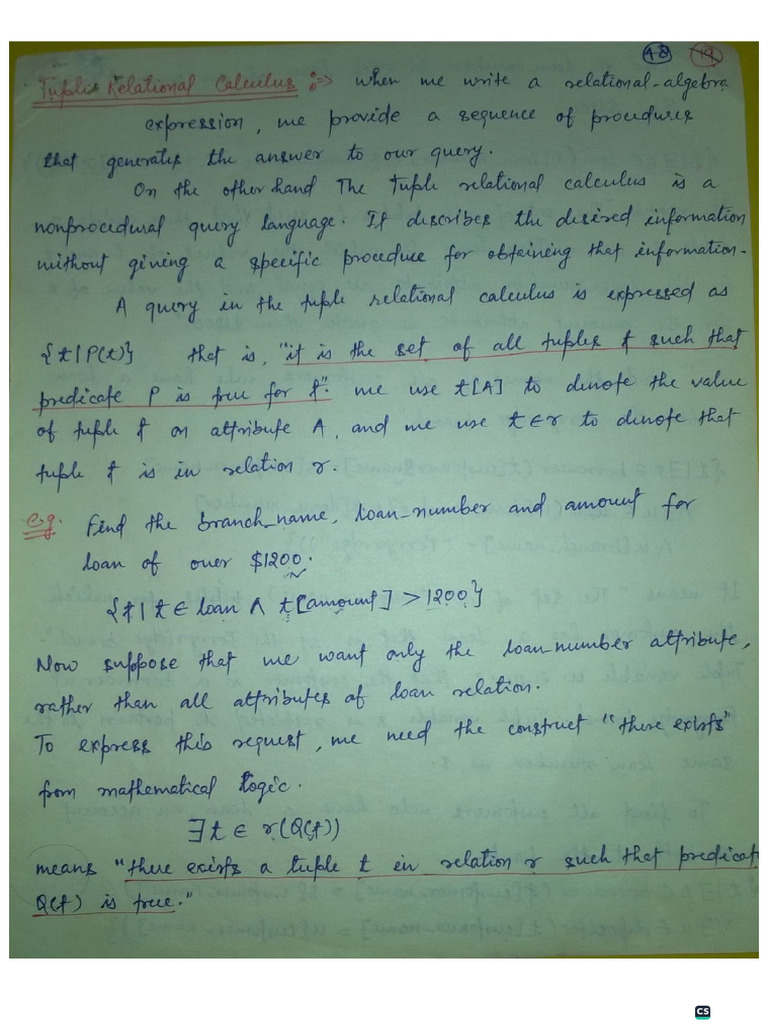 48 19
Tuple Relational Calculus :=> when we write a relational-algebra
expression, we provide a sequence of procedures
that generates the answer to our query.
On the other hand The Tuple relational calculus is a
nonprocedural query language. It describes the desired information
without giving a specific procedure for obtaining that information.
A query in the tuple relational calculus is expressed as
{t|P(t)} that is, "it is the set of all tuples t such that
predicate P is true for t". we use t[A] to denote the value
of tuple t on attribute A, and we use t∈r to denote that
tuple t is in relation r.
e.g. Find the branch_name, loan_number and amount for
loan of over $1200.
{t| t ∈ loan ∧ t[amount] > 1200}
Now suppose that we want only the loan_number attribute,
rather than all attributes of loan relation.
To express this request, we need the construct "there exists"
from mathematical logic.
∃ t ∈ r(Q(t))
means "there exists a tuple t in relation r such that predicate
Q(t) is true."
CS